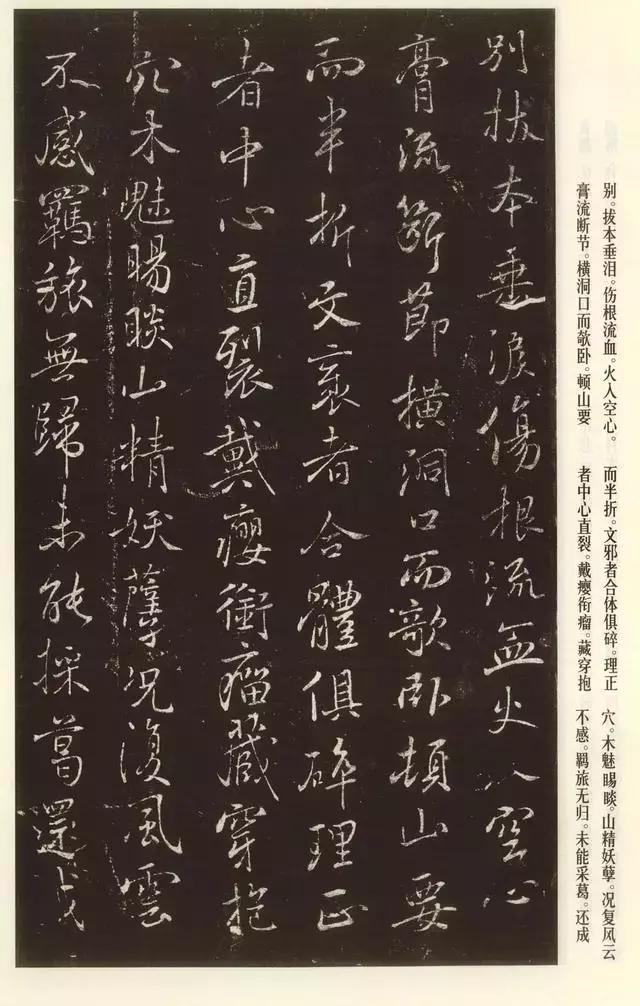 别拔本垂淚傷根流血火入空心
膏流斷節橫洞口而欹卧頓山要
而半折文衺者合體俱碎理正
者中心直裂戴癭衘瘤藏穿抱
穴木魅晹睒山精妖孽况復風雲
不感羈旅無歸未能採葛還成
别。拔本垂泪。伤根流血。火入空心。
膏流断节。横洞口而欹卧。顿山要
而半折。文邪者合体俱碎。理正
者中心直裂。戴瘿衔瘤。藏穿抱
穴。木魅睗睒。山精妖孽。况复风云
不感。羁旅无归。未能采葛。还成